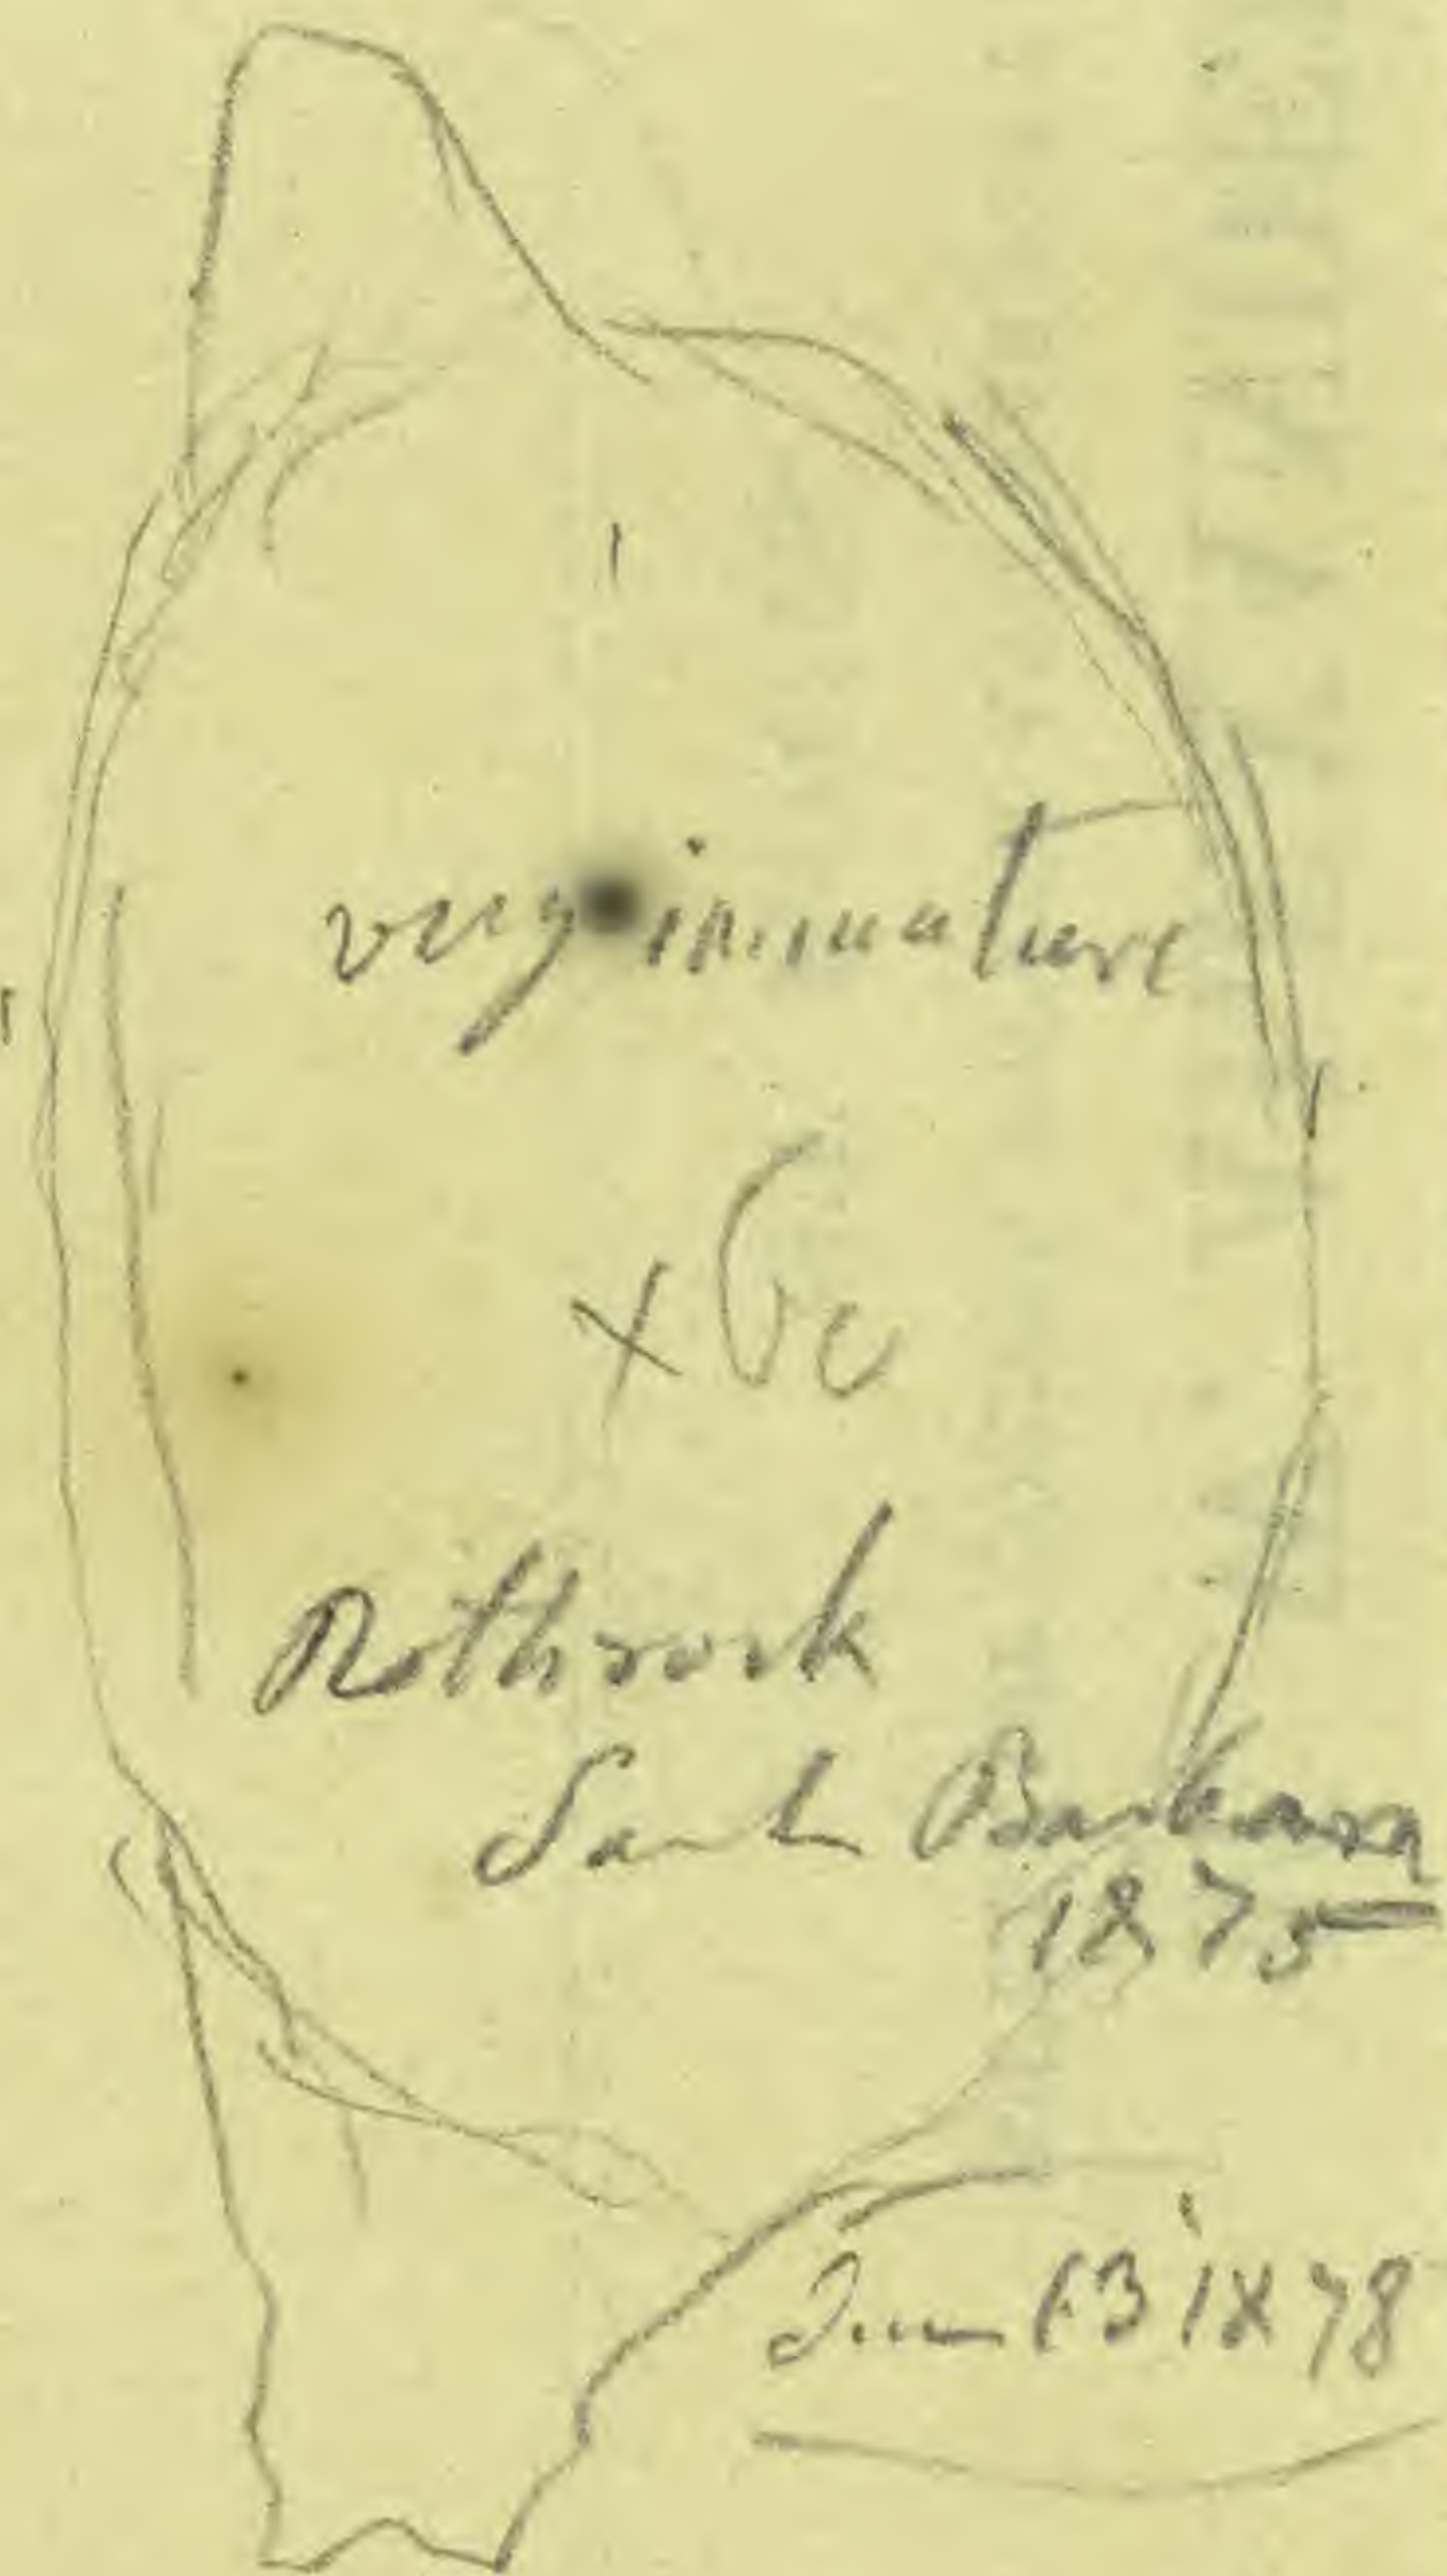 very immature
× 60
Rothrock
Santa Barbara
1875
June 13 1878